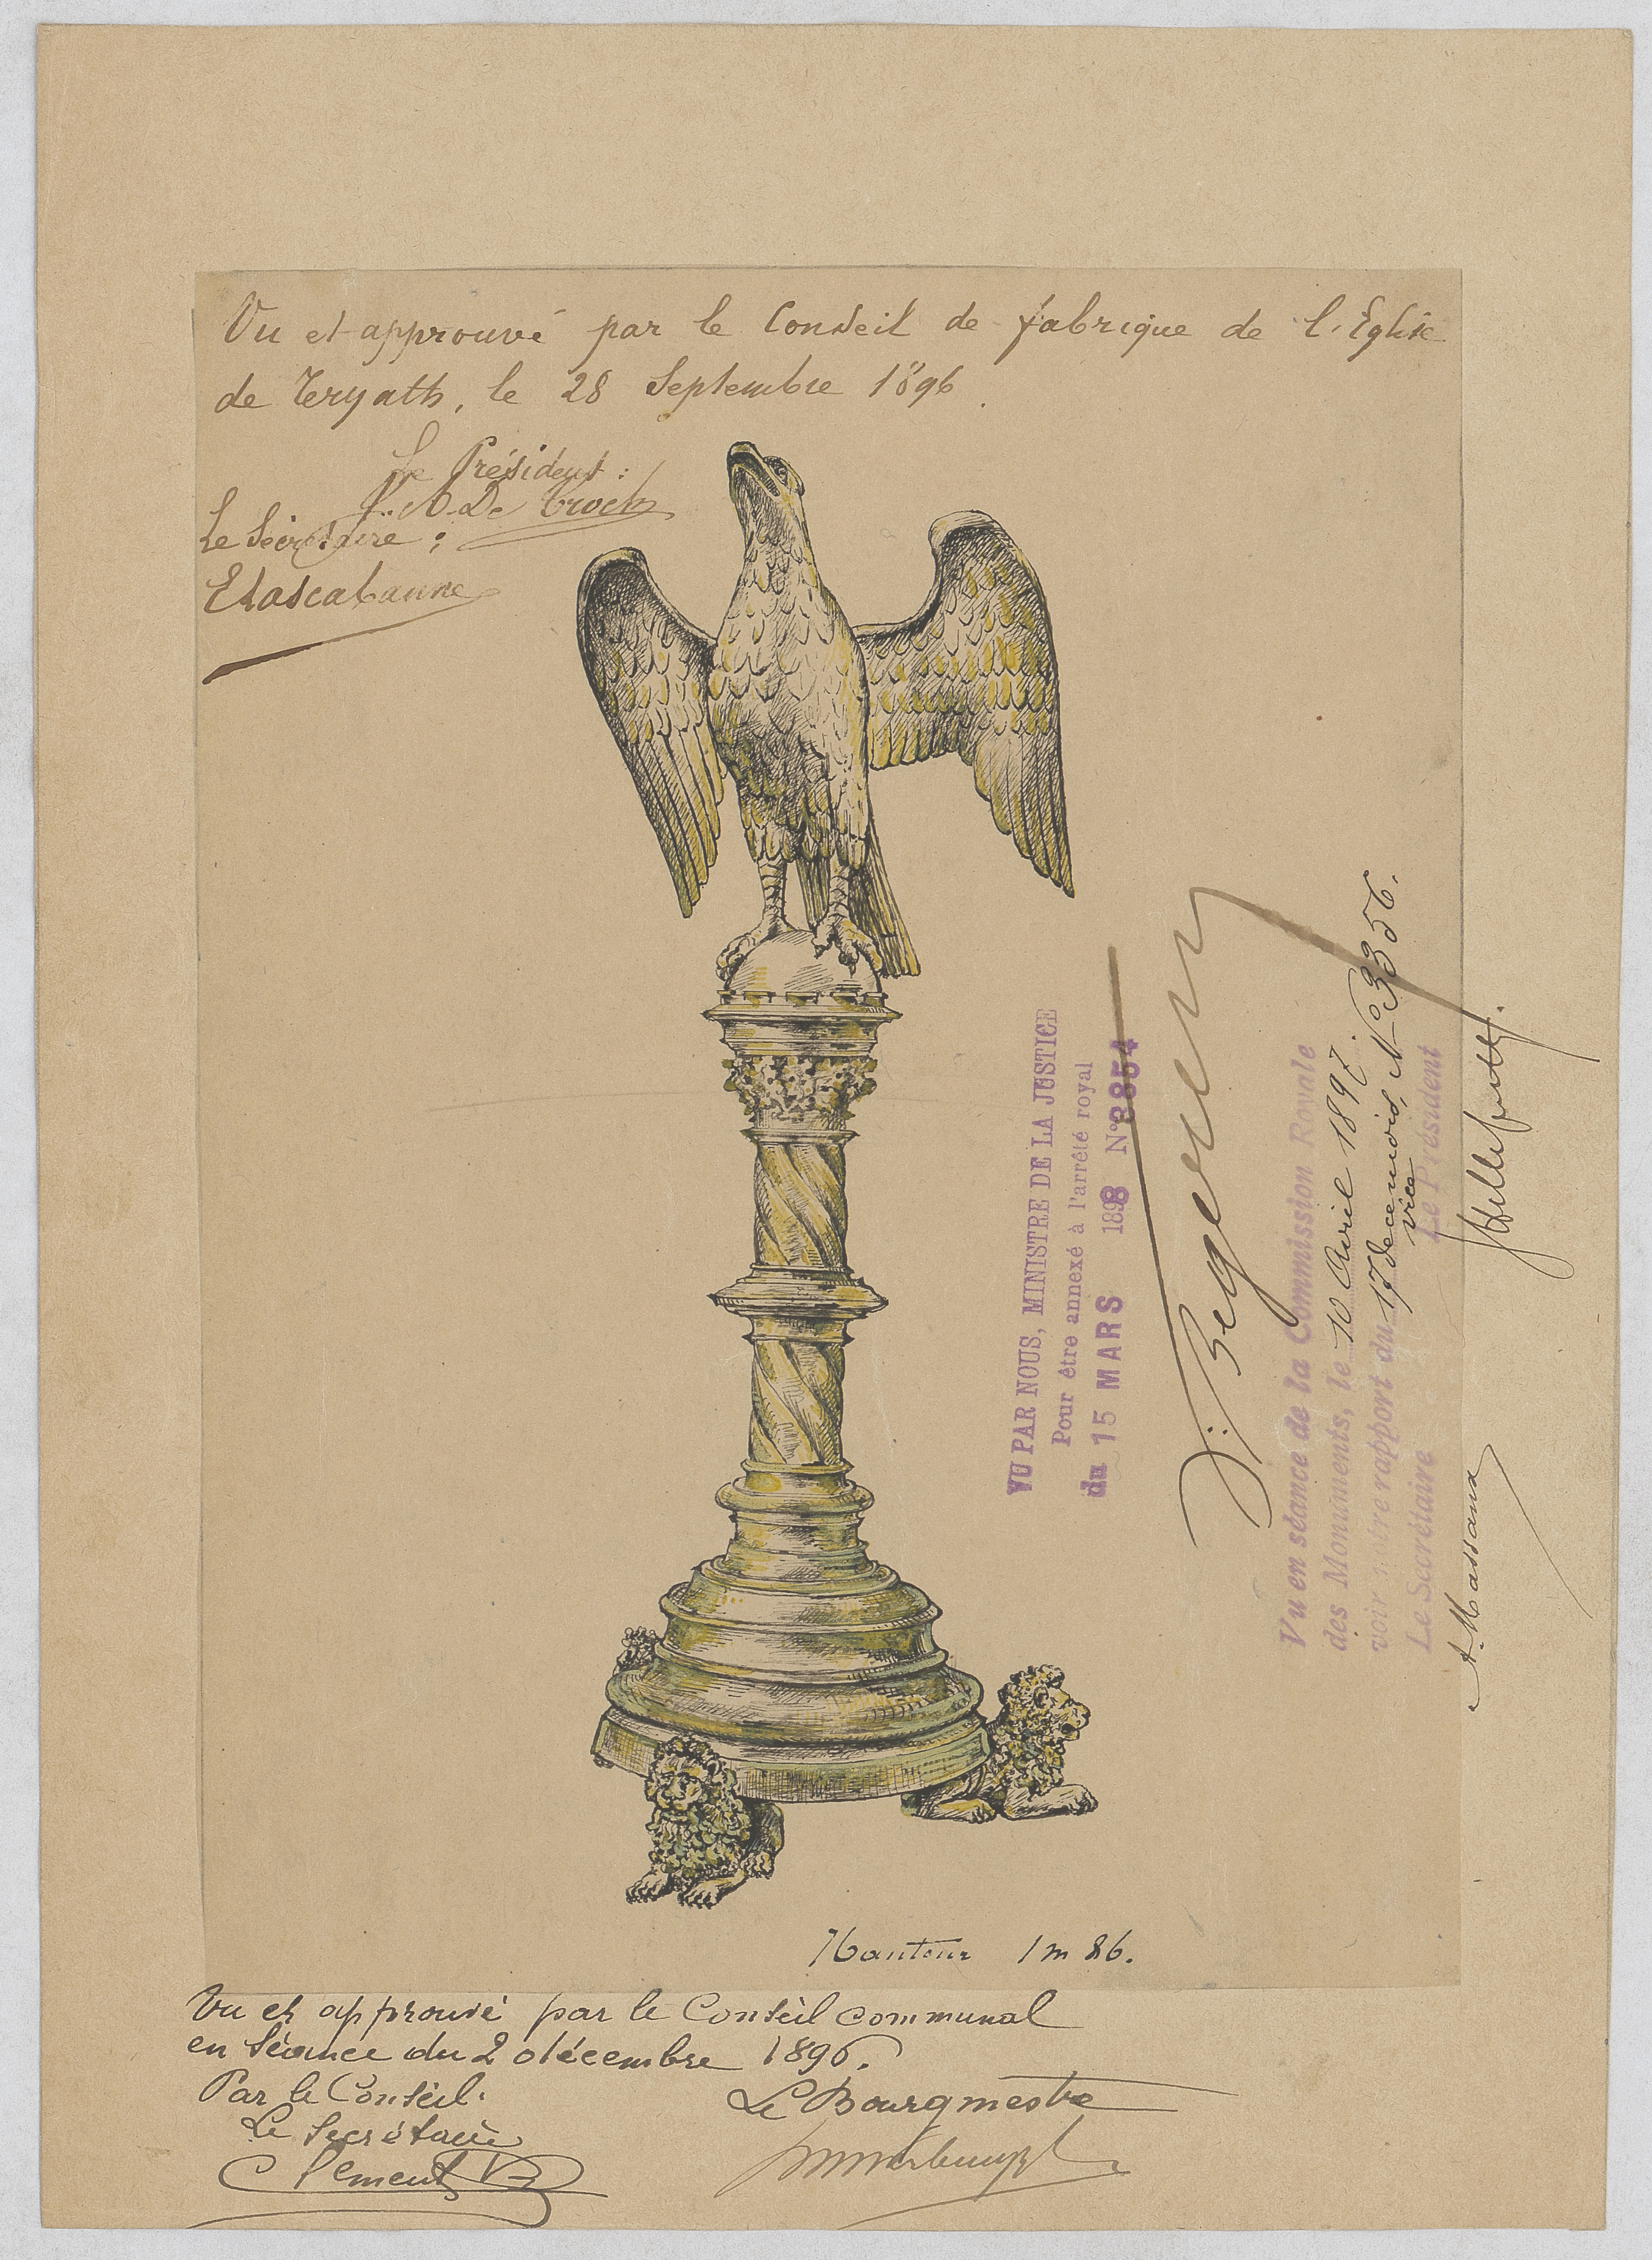 Vu et approuvé par le Conseil de fabrique de l'Eglise
de Teryath, le 28 Septembre 1896.
Le Président :
De Troch
Le Secrétaire :
VU PAR NOUS, MINISTRE DE LA JUSTICE
Pour être annexé à l'arrêté royal
du 15 MARS 1898 N° 8854
Vu en séance de la Commission Royale
des Monuments, le 10 Avril 1897.
voir notre rapport du 17 de ce mois, N° 3356.
vice
Le Secrétaire Le Président
A Massaux
Hauteur 1 m 86.
Vu et approuvé par le Conseil communal
en séance du 2 décembre 1896.
Par le Conseil.
Le Secrétaire
Clement
Le Bourgmestre